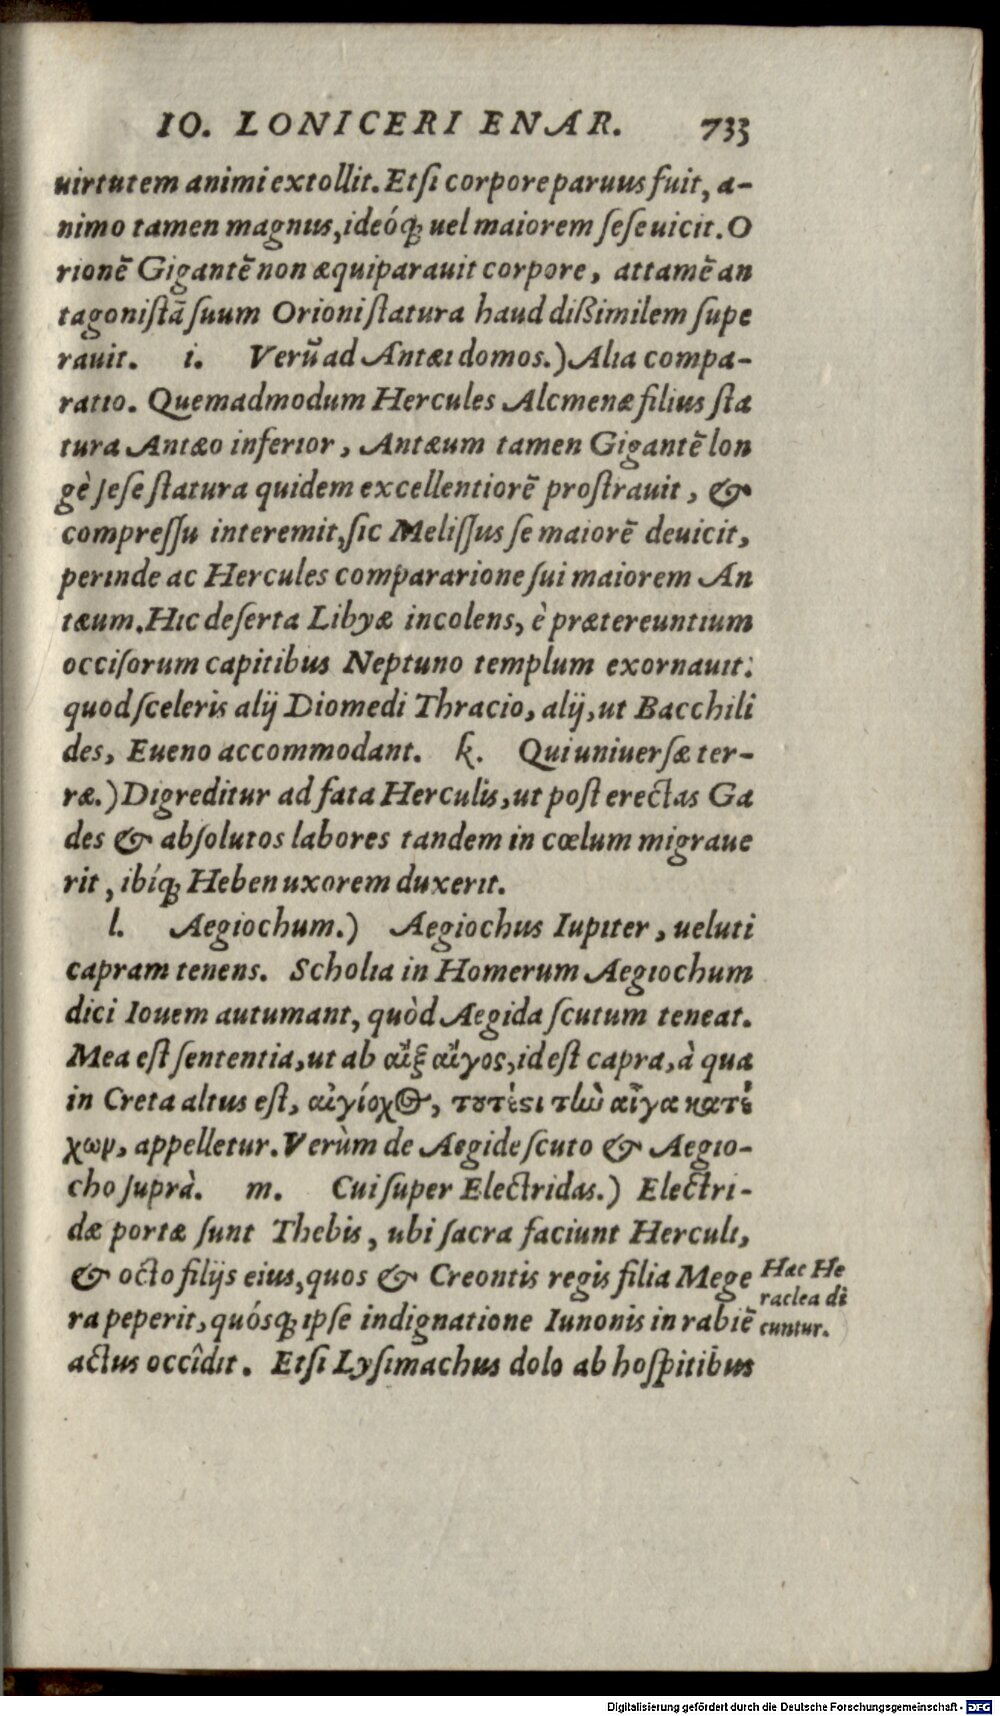 IO. LONICERI ENAR. 733
uirtutem animi extollit. Etſi corpore paruus fuit, a-
nimo tamen magnus, ideóq́; uel maiorem ſeſe uicit. O
rionē Gigantē non æquiparauit corpore, attamē an
tagoniſtā ſuum Orioni ſtatura haud dißimilem ſupe
rauit. i. Verū ad Antæi domos.) Alia compa-
ratio. Quemadmodum Hercules Alcmenæ filius ſta
tura Antæo inferior, Antæum tamen Gigantē lon
gè ſeſe ſtatura quidem excellentiorē proſtrauit, &
compreſſu interemit, ſic Meliſſus ſe maiorē deuicit,
perinde ac Hercules compararione ſui maiorem An
tæum. Hic deſerta Libyæ incolens, è prætereuntium
occiſorum capitibus Neptuno templum exornauit:
quod ſceleris alij Diomedi Thracio, alij, ut Bacchili
des, Eueno accommodant. k. Qui uniuerſæ ter-
ræ.) Digreditur ad fata Herculis, ut poſt erectas Ga
des & abſolutos labores tandem in cœlum migraue
rit, ibíq; Heben uxorem duxerit.
l. Aegiochum.) Aegiochus Iupiter, ueluti
capram tenens. Scholia in Homerum Aegiochum
dici Iouem autumant, quòd Aegida ſcutum teneat.
Mea eſt ſententia, ut ab αἴξ αἴγος, id eſt capra, à qua
in Creta altus eſt, αἰγίοχος, τουτέστι τὴν αἶγα κατέ
χων, appelletur. Verùm de Aegide ſcuto & Aegio-
cho ſuprà. m. Cui ſuper Electridas.) Electri-
dæ portæ ſunt Thebis, ubi ſacra faciunt Herculi,
& octo filijs eius, quos & Creontis regis filia Mege
ra peperit, quósq; ipſe indignatione Iunonis in rabiē
actus occîdit. Etſi Lyſimachus dolo ab hoſpitibus
Hæc He
raclea di
cuntur.
Digitalisierung gefördert durch die Deutsche Forschungsgemeinschaft - DFG